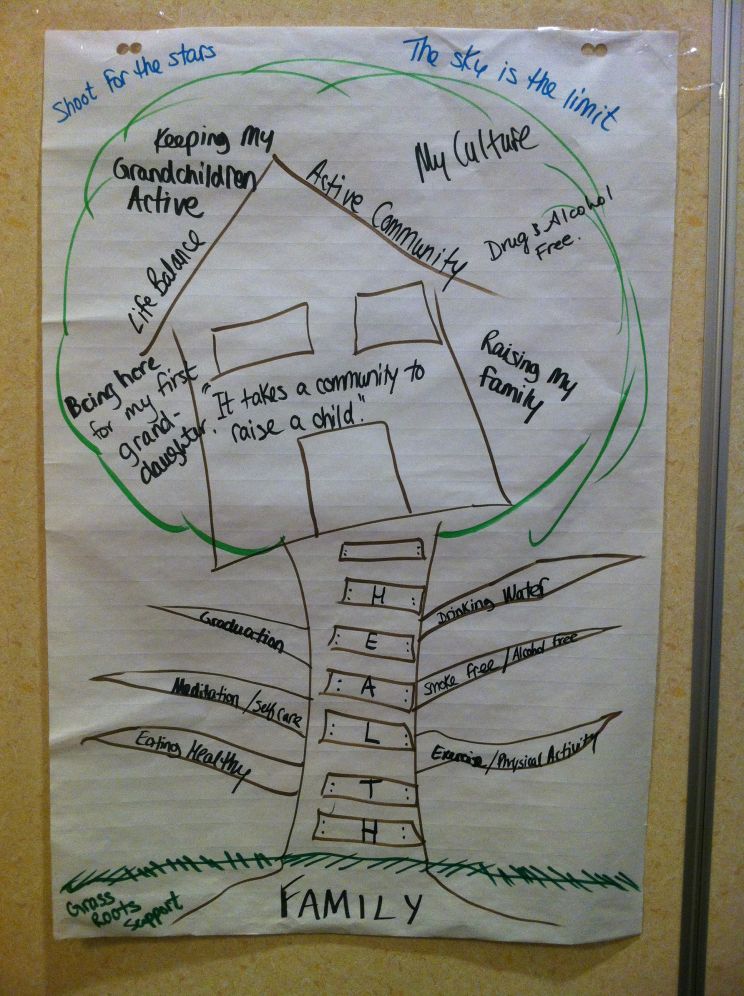 Shoot for the stars
The sky is the limit
Keeping My
Grandchildren
Active
Active Community
My Culture
Drug & Alcohol
Free.
Life Balance
Raising My
family
Being here
for my first
grand-
daughter.
"It takes a community to
raise a child."
H
E
A
L
T
H
Graduation
Meditation / Self care
Eating Healthy
Drinking Water
Smoke Free / Alcohol Free
Exercise / Physical Activity
Grass
Roots
Support
FAMILY